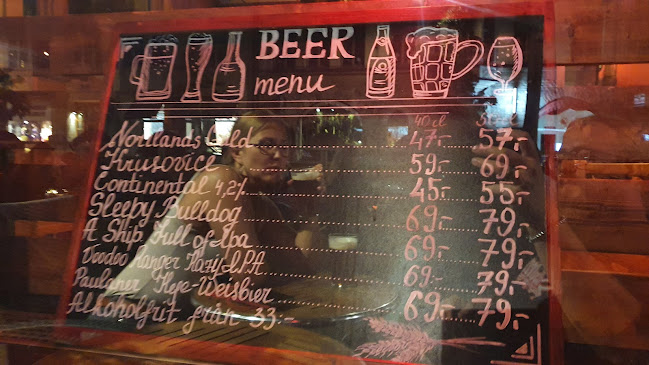 BEER
menu
40cl
Norrlands Guld 47:- 57:-
Krusovice 59:- 69:-
Continental 4,2% 45:- 55:-
Sleepy Bulldog 69:- 79:-
A Ship Full of Ipa 69:- 79:-
Voodoo Ranger Hazy IPA 69:- 79:-
Paulaner Hefe-Weisbier 69:- 79:-
Alkoholfrit från 33:-